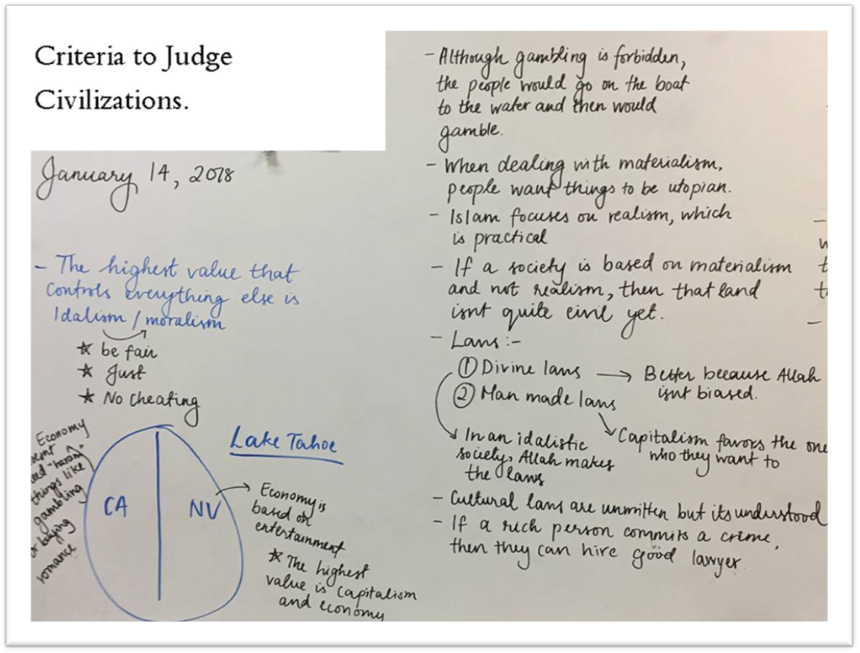 Criteria to Judge
Civilizations.
January 14, 2018
- The highest value that
controls everything else is
Idalism / moralism
★ be fair
★ Just
★ No cheating
Lake Tahoe
Economy
"haram"
things like
gambling
or buying
romance
CA
NV
Economy is
based on
entertainment
★ The highest
value is capitalism
and economy
- Although gambling is forbidden,
the people would go on the boat
to the water and then would
gamble.
- When dealing with materialism,
people want things to be utopian.
- Islam focuses on realism, which
is practical
- If a society is based on materialism
and not realism, then that land
isnt quite civil yet.
- Laws:-
① Divine laws → Better because Allah
isnt biased.
② Man made laws
Capitalism favors the one
who they want to
In an idalistic
society, Allah makes
the laws
- Cultural laws are unwritten but its understood
- If a rich person commits a crime,
then they can hire good lawyer.